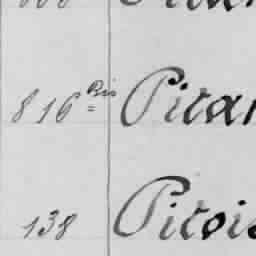 816 Bis Pitar
138 Pitois